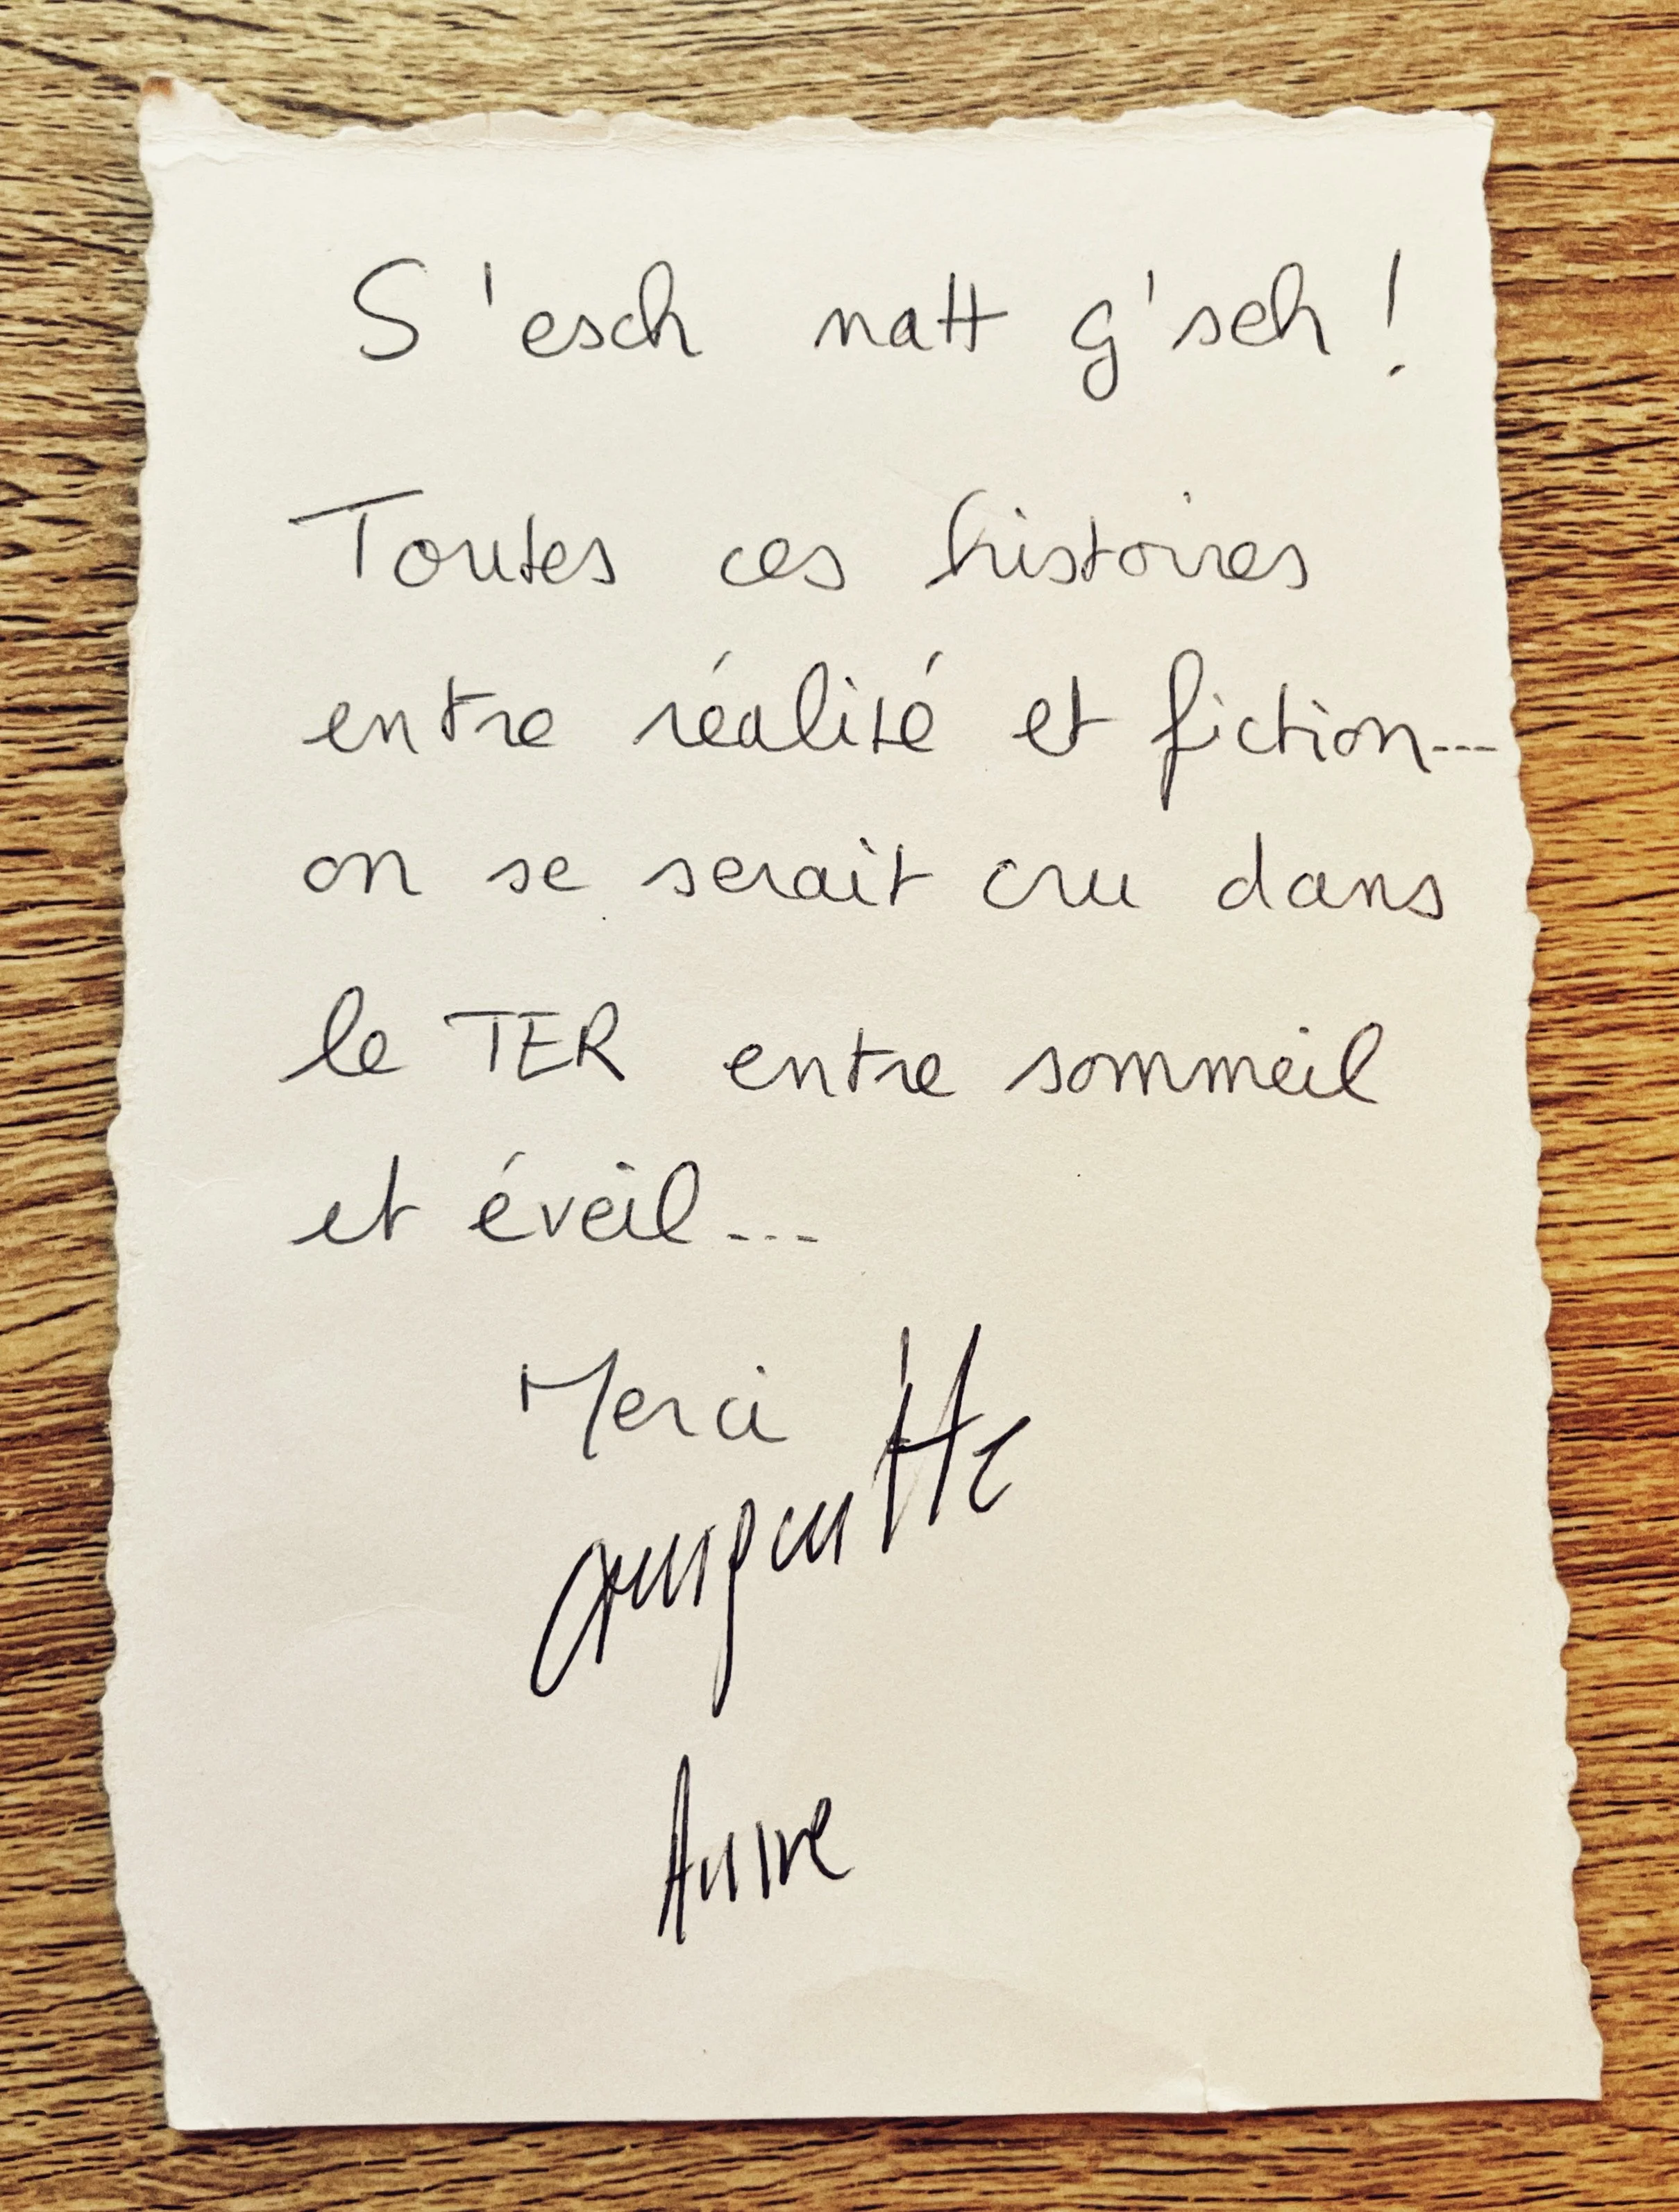 S'esch natt g'seh !
Toutes ces histoires
entre réalité et fiction...
on se serait cru dans
le TER entre sommeil
et éveil...
Merci
Anne